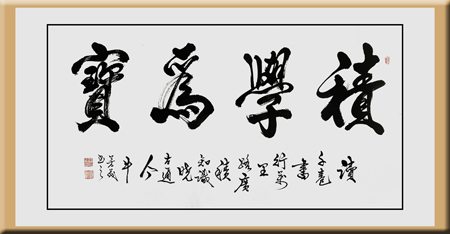 積學為寶
讀千卷書行萬里路廣積知識曉古通今